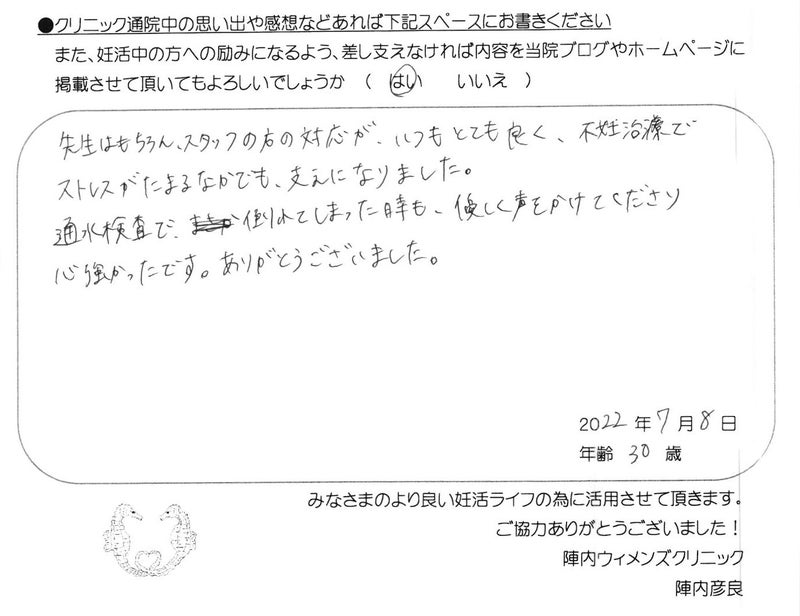 ●クリニック通院中の思い出や感想などあれば下記スペースにお書きください
また、妊活中の方への励みになるよう、差し支えなければ内容を当院ブログやホームページに
掲載させて頂いてもよろしいでしょうか （ はい　いいえ ）
先生はもちろん、スタッフの方の対応が、いつもとても良く、不妊治療で
ストレスがたまるなかでも、支えになりました。
通水検査で、倒れてしまった時も、優しく声をかけてくださり
心強かったです。ありがとうございました。
2022 年 7 月 8 日
年齢 30 歳
みなさまのより良い妊活ライフの為に活用させて頂きます。
ご協力ありがとうございました！
陣内ウィメンズクリニック
陣内彦良